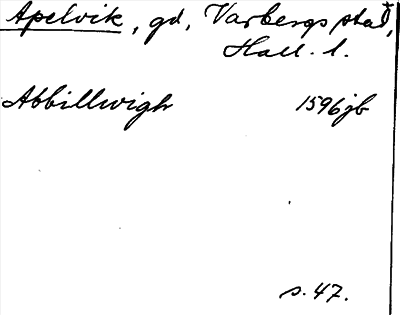 Apelvik, gd, Varbergs stad,
Hall. l.
Abbillwigh 1596 jb
s. 47.